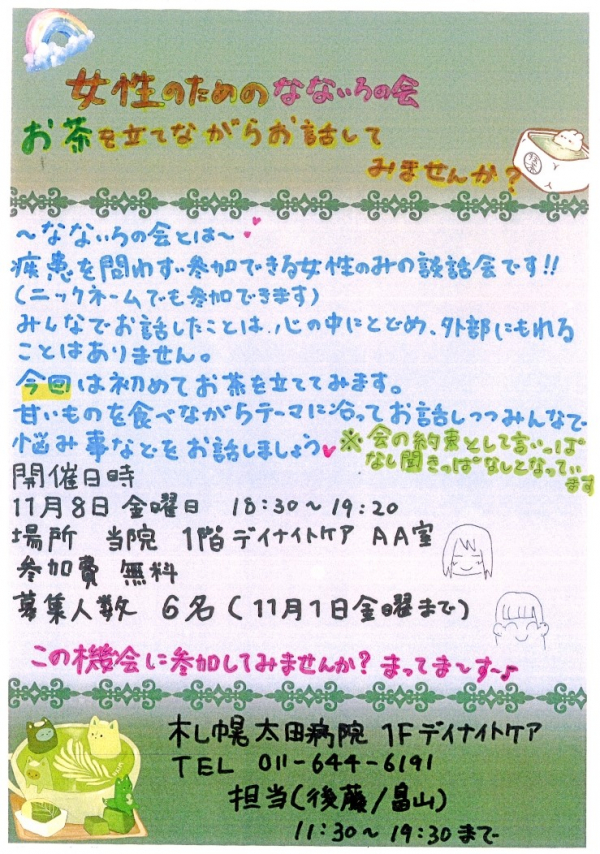 女性のためのなないろの会
お茶を立てながらお話して
みませんか?
抹茶
～なないろの会とは～
疾患を問わず参加できる女性のみの談話会です!!
(ニックネームでも参加できます)
みんなでお話したことは、心の中にとどめ、外部にもれる
ことはありません。
今回は初めてお茶を立ててみます。
甘いものを食べながらテーマに沿ってお話しつつみんなで
悩み事などをお話しましょう
※会の約束として言いっぱ
なし聞きっぱなしとなってい
ます
開催日時
11月8日 金曜日 18:30～19:20
場所 当院 1階デイナイトケア AA室
参加費 無料
募集人数 6名(11月1日金曜まで)
この機会に参加してみませんか? まってま～す～♪
札幌太田病院 1Fデイナイトケア
TEL 011-644-6191
担当(後藤/畠山)
11:30～19:30まで